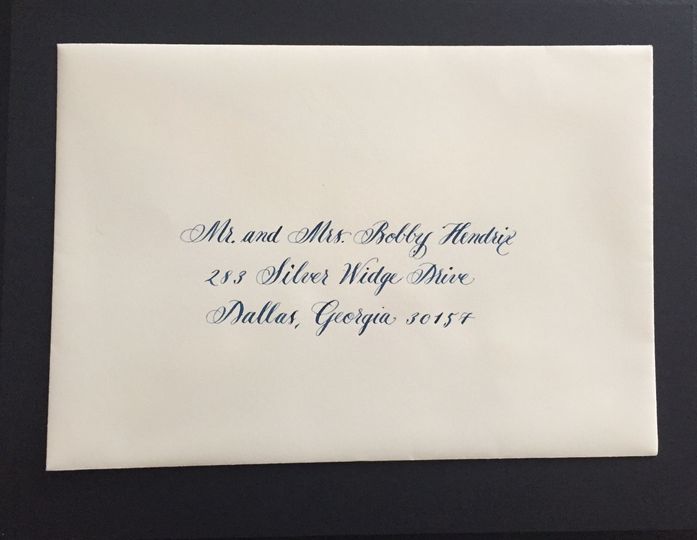 Mr. and Mrs. Bobby Hendrix
283 Silver Widge Drive
Dallas, Georgia 30157